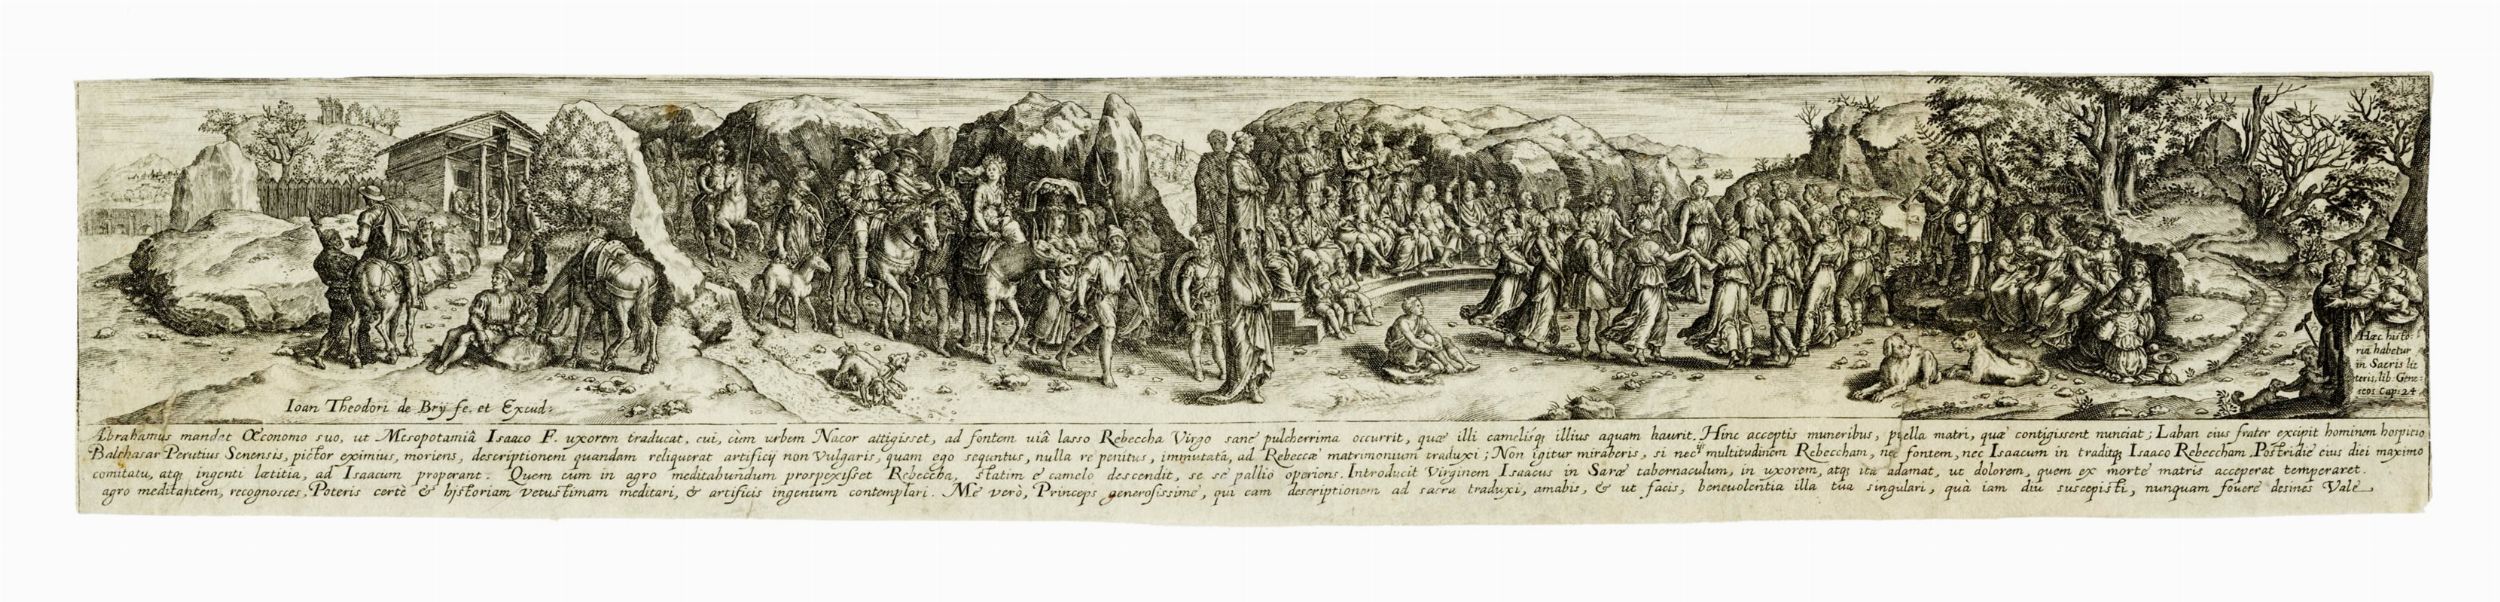 Ioan Theodori de Brÿ fe. et Excud:
Hæc histo-
ria habetur
in Sacris lit
teris, lib. Gene:
seos Cap: 24
Abrahamus mandat Œconomo suo, ut Mesopotamiâ Isaaco F. uxorem traducat, cui, cùm urbem Nacor attigisset, ad fontem viâ lasso Rebeccha Virgo sanè pulcherrima occurrit, quæ illi camelisq; illius aquam haurit. Hinc acceptis muneribus, puella matri, quæ contigissent nunciat; Laban eius frater excipit hominem hospitio
Balthasar Perutius Senensis, pictor eximius, moriens, descriptionem quandam reliquerat artificij non vulgaris, quam ego sequutus, nulla re penitus, immutatâ, ad Rebeccæ matrimonium traduxi; Non igitur miraberis, si nec multitudinem Rebeccham, nec fontem, nec Isaacum in traditq; Isaaco Rebeccham. Postridie eius diei maximo
comitatu, atq; ingenti lætitia, ad Isaacum properant. Quem cùm in agro meditabundum prospexisset Rebeccha, statim è camelo descendit, se sè pallio operiens. Introducit Virginem Isaacus in Saræ tabernaculum, in uxorem, atq; ita adamat, ut dolorem, quem ex morte matris acceperat temperaret.
agro meditantem, recognosces, Poteris certè & historiam vetustimam meditari, & artificis ingenium contemplari. Me verò, Princeps generosissime, qui eam descriptionem ad sacra traduxi, amabis, & ut facis, benevolentia illa tua singulari, quà iam diu suscepisti, nunquam fovere desines Vale